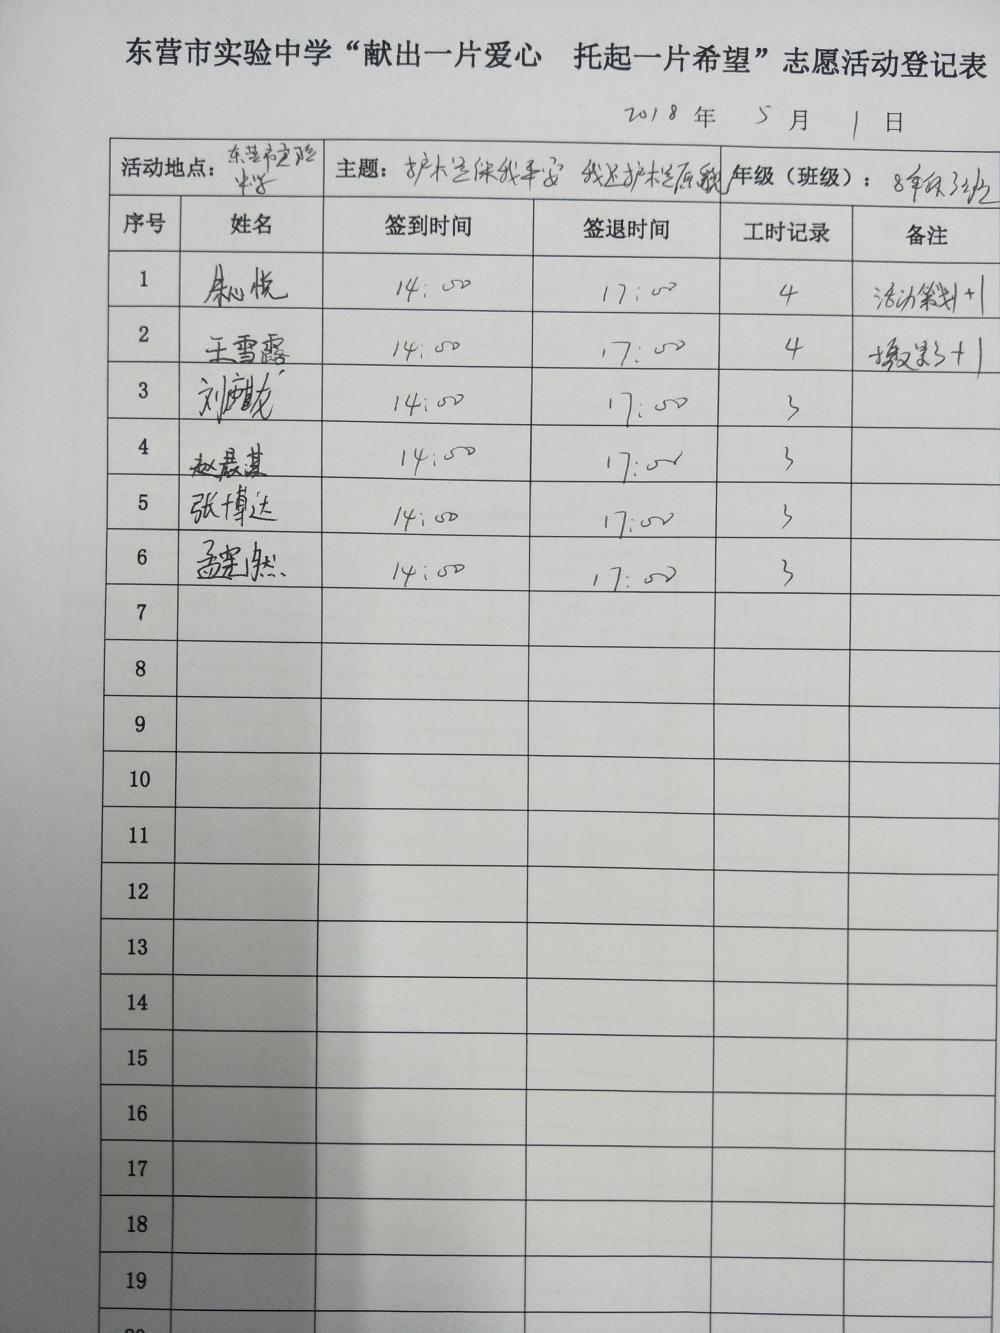 东营市实验中学“献出一片爱心 托起一片希望”志愿活动登记表
2018 年 5 月 1 日
活动地点：东营市实验中学 主题：护栏保我平安 我还护栏 年级（班级）：8年级3班
序号 姓名 签到时间 签退时间 工时记录 备注
1 14:00 17:00 4 活动策划+1
2 王雪露 14:00 17:00 4 摄影+1
3 14:00 17:00 3
4 赵晨 14:00 17:00 3
5 张博达 14:00 17:00 3
6 孟 然 14:00 17:00 3
7
8
9
10
11
12
13
14
15
16
17
18
19